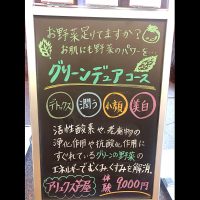 お野菜足りてますか?
お肌にも野菜のパワーを…
グリーンデュアコース
デトックス 潤う 小顔 美白
活性酸素や、老廃物の
浄化作用や抗酸化作用に
すぐれているグリーンの野菜の
エネルギーでむくみ、くすみを解消。
体験 9,000円